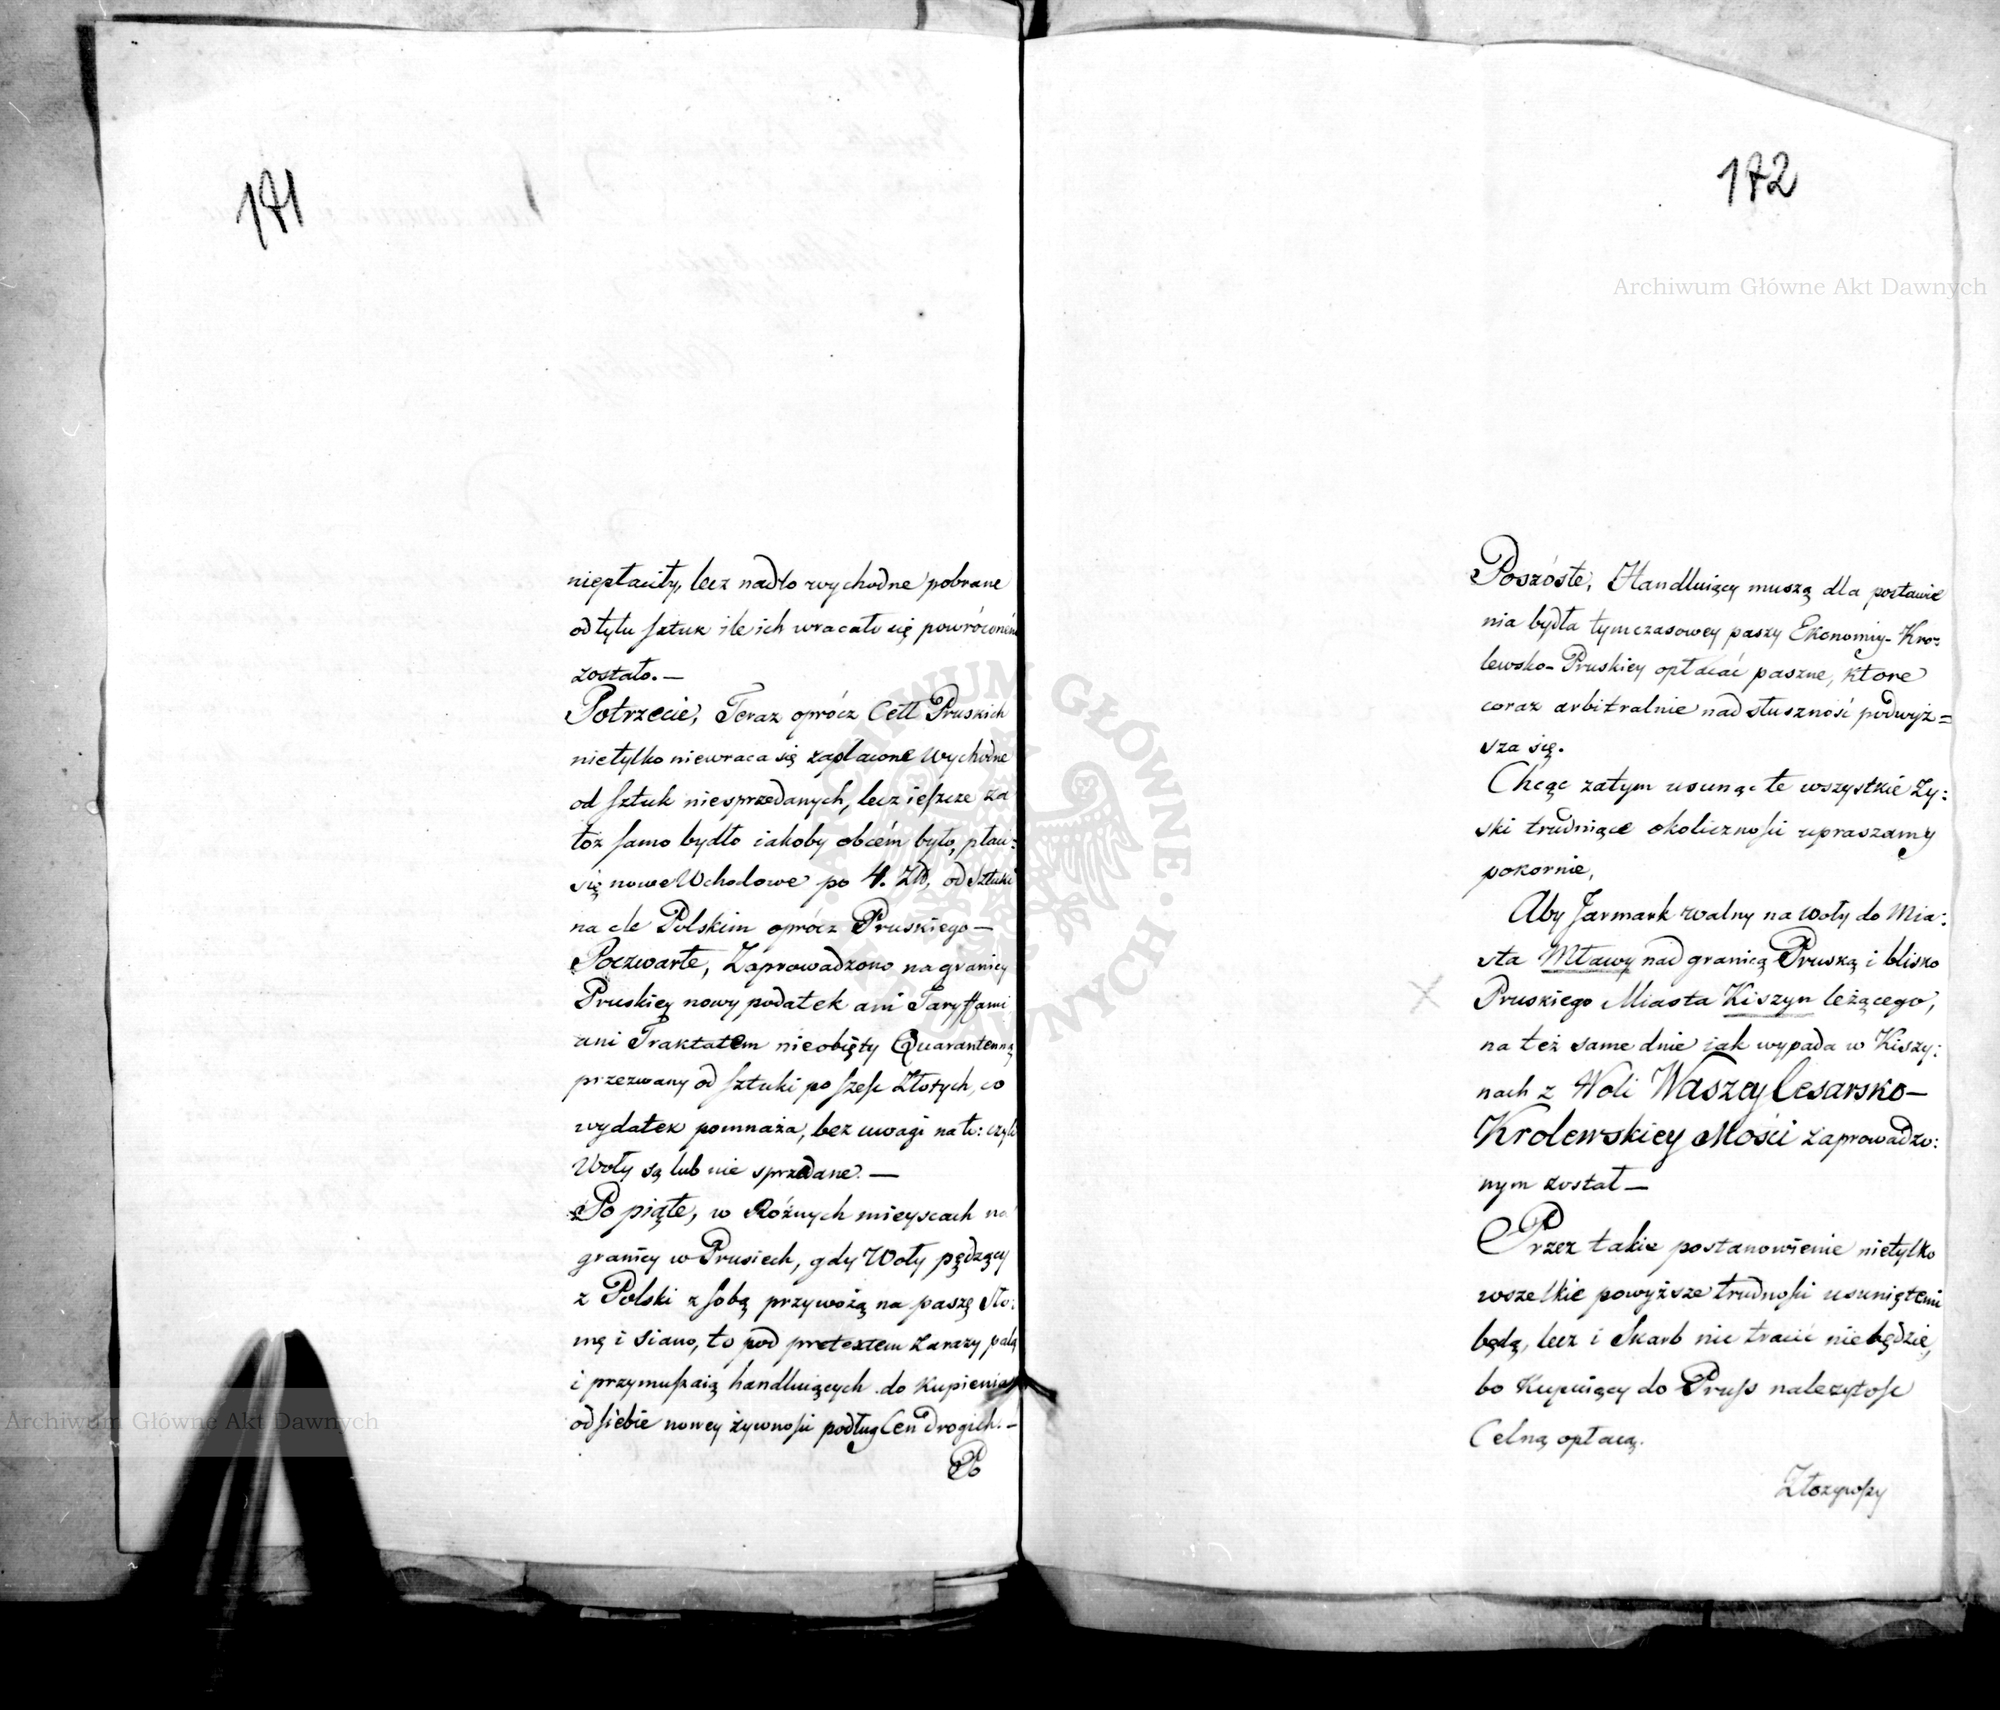 171
niepłaciły, lecz nadto wychodne pobrane
od tylu sztuk ile ich wracało się powrócone
zostało.—
Potrzecie, Teraz oprócz Cełł Pruskich
nietylko niewraca się zapłacone Wychodne
od sztuk niesprzedanych, lecz ieszcze za
toż samo bydło iakoby obcém było, płaci
się nowe Wchodowe po 4. Zł, od sztuki
na cle Polskim oprócz Pruskiego—
Poczwarte, Zaprowadzono na granicy
Pruskiey nowy podatek ani Taryffami
ani Traktatem nieobięty Quarantenną
przezwany od sztuki po sześć Złotych, co
wydatek pomnaża, bez uwagi na to: czyli
Woły są lub nie sprzedane.—
Po piąte, w Róźnych mieyscach na
granicy w Prusiech, gdy Woły pędzący
z Polski z sobą przywożą na paszę sło:
mę i siano, to pod pretextem zarazy palą
i przymuszaią handluiących do kupienia
od siebie nowey żywności podług Cen Drogich.—
Po
172
Archiwum Główne Akt Dawnych
Poszóste, Handluiący muszą dla postawie
nia bydła tymczasowey paszy Ekonomiy-Kro:
lewsko-Pruskiey opłacać paszne, ktore
coraz arbitralnie nad słuszność podwyż=
sza się.
Chcąc zatym usunąc te wszystkie Zy:
ski trudniące okoliczności upraszamy
pokornie,
Aby Jarmark walny na Woły do Mia:
sta Mławy nad granicą Pruską i blisko
Pruskiego Miasta Kiszyn leżącego,
na też same dnie jak wypada w Kiszy:
nach z Woli Waszey Cesarsko—
Krolewskiey Mości zaprowadzo:
nym został—
Przez takie postanowienie nietylko
wszelkie powyższe trudności usuniętemi
będą, lecz i Skarb nic tracić niebędzie,
bo Kupuiący do Pruss należytość
Celną opłacą.
Złozywszy
Archiwum Główne Akt Dawnych
ARCHIWUM GŁÓWNE · AKT DAWNYCH ·